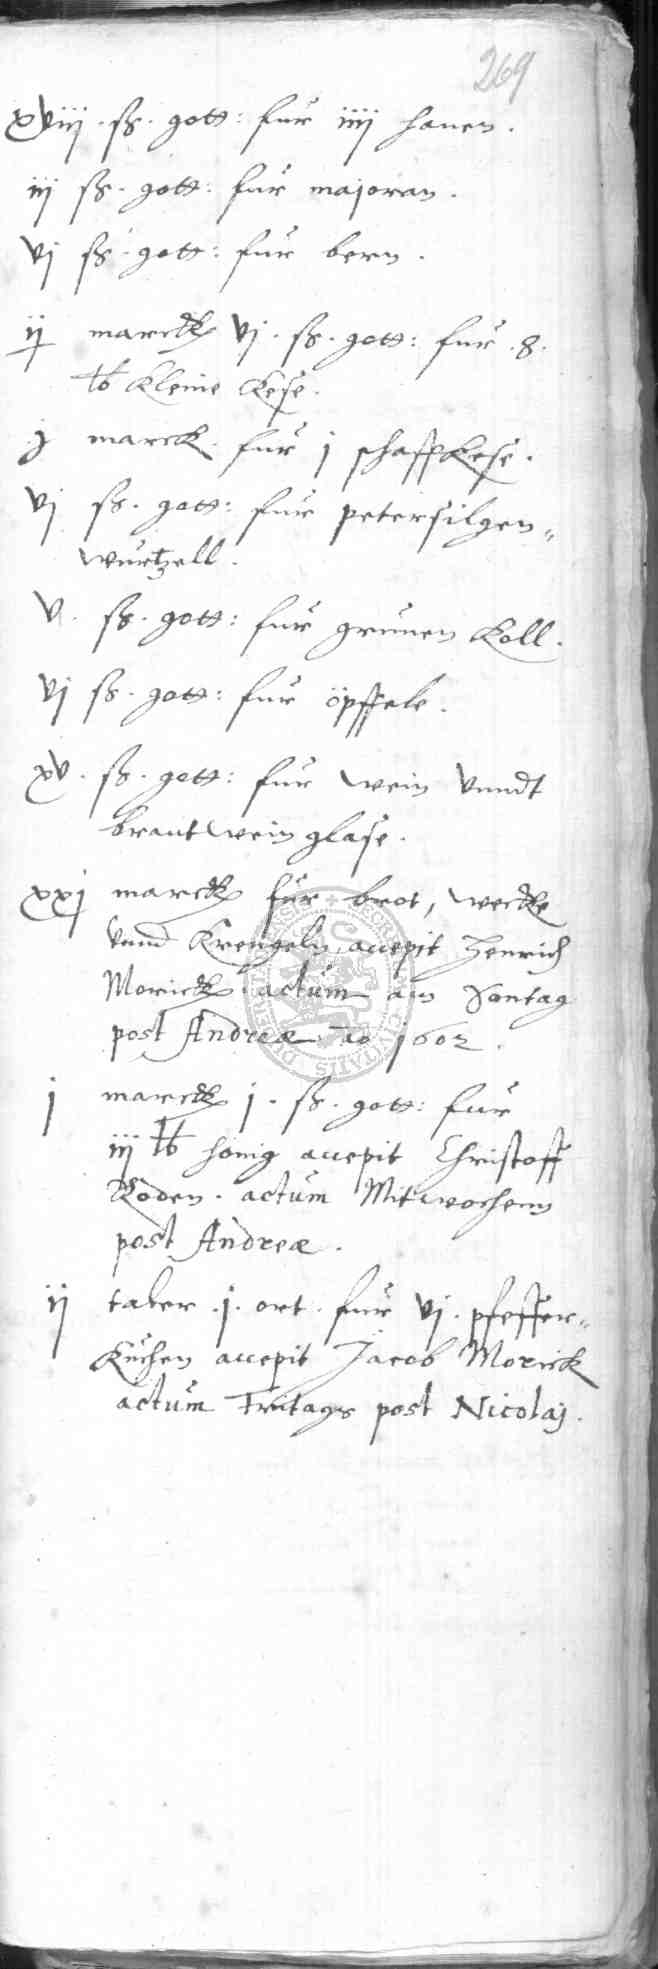 269
xviij . ß . gott: fur iiij hanen .
iij ß . gott: fur majoran .
vj ß . gott: fur bern .
ij marck vj . ß . gott: fur . 8 .
℔ kleine kese .
j marck . fur j schaffkese .
vj ß . gott: fur petersilgen„
wurtzell .
v . ß . gott: fur grunen koll .
vj ß . gott: fur öpffele .
xv . ß . gott: fur wein vnndt
brantwein glase .
xxj marck fur brot, wecke
vnnd krengeln, accepit Henrich
Morick . actum am Sontag
post Andreæ ao 1602 .
j marck j . ß . gott: fur
iij ℔ honig accepit Christoff
Roden . actum Mitwochenn
post Andreæ .
ij taler . j . ort . fur vj . pfeffer„
kuchen accepit Jacob Morick
actum Fritags post Nicolaj .